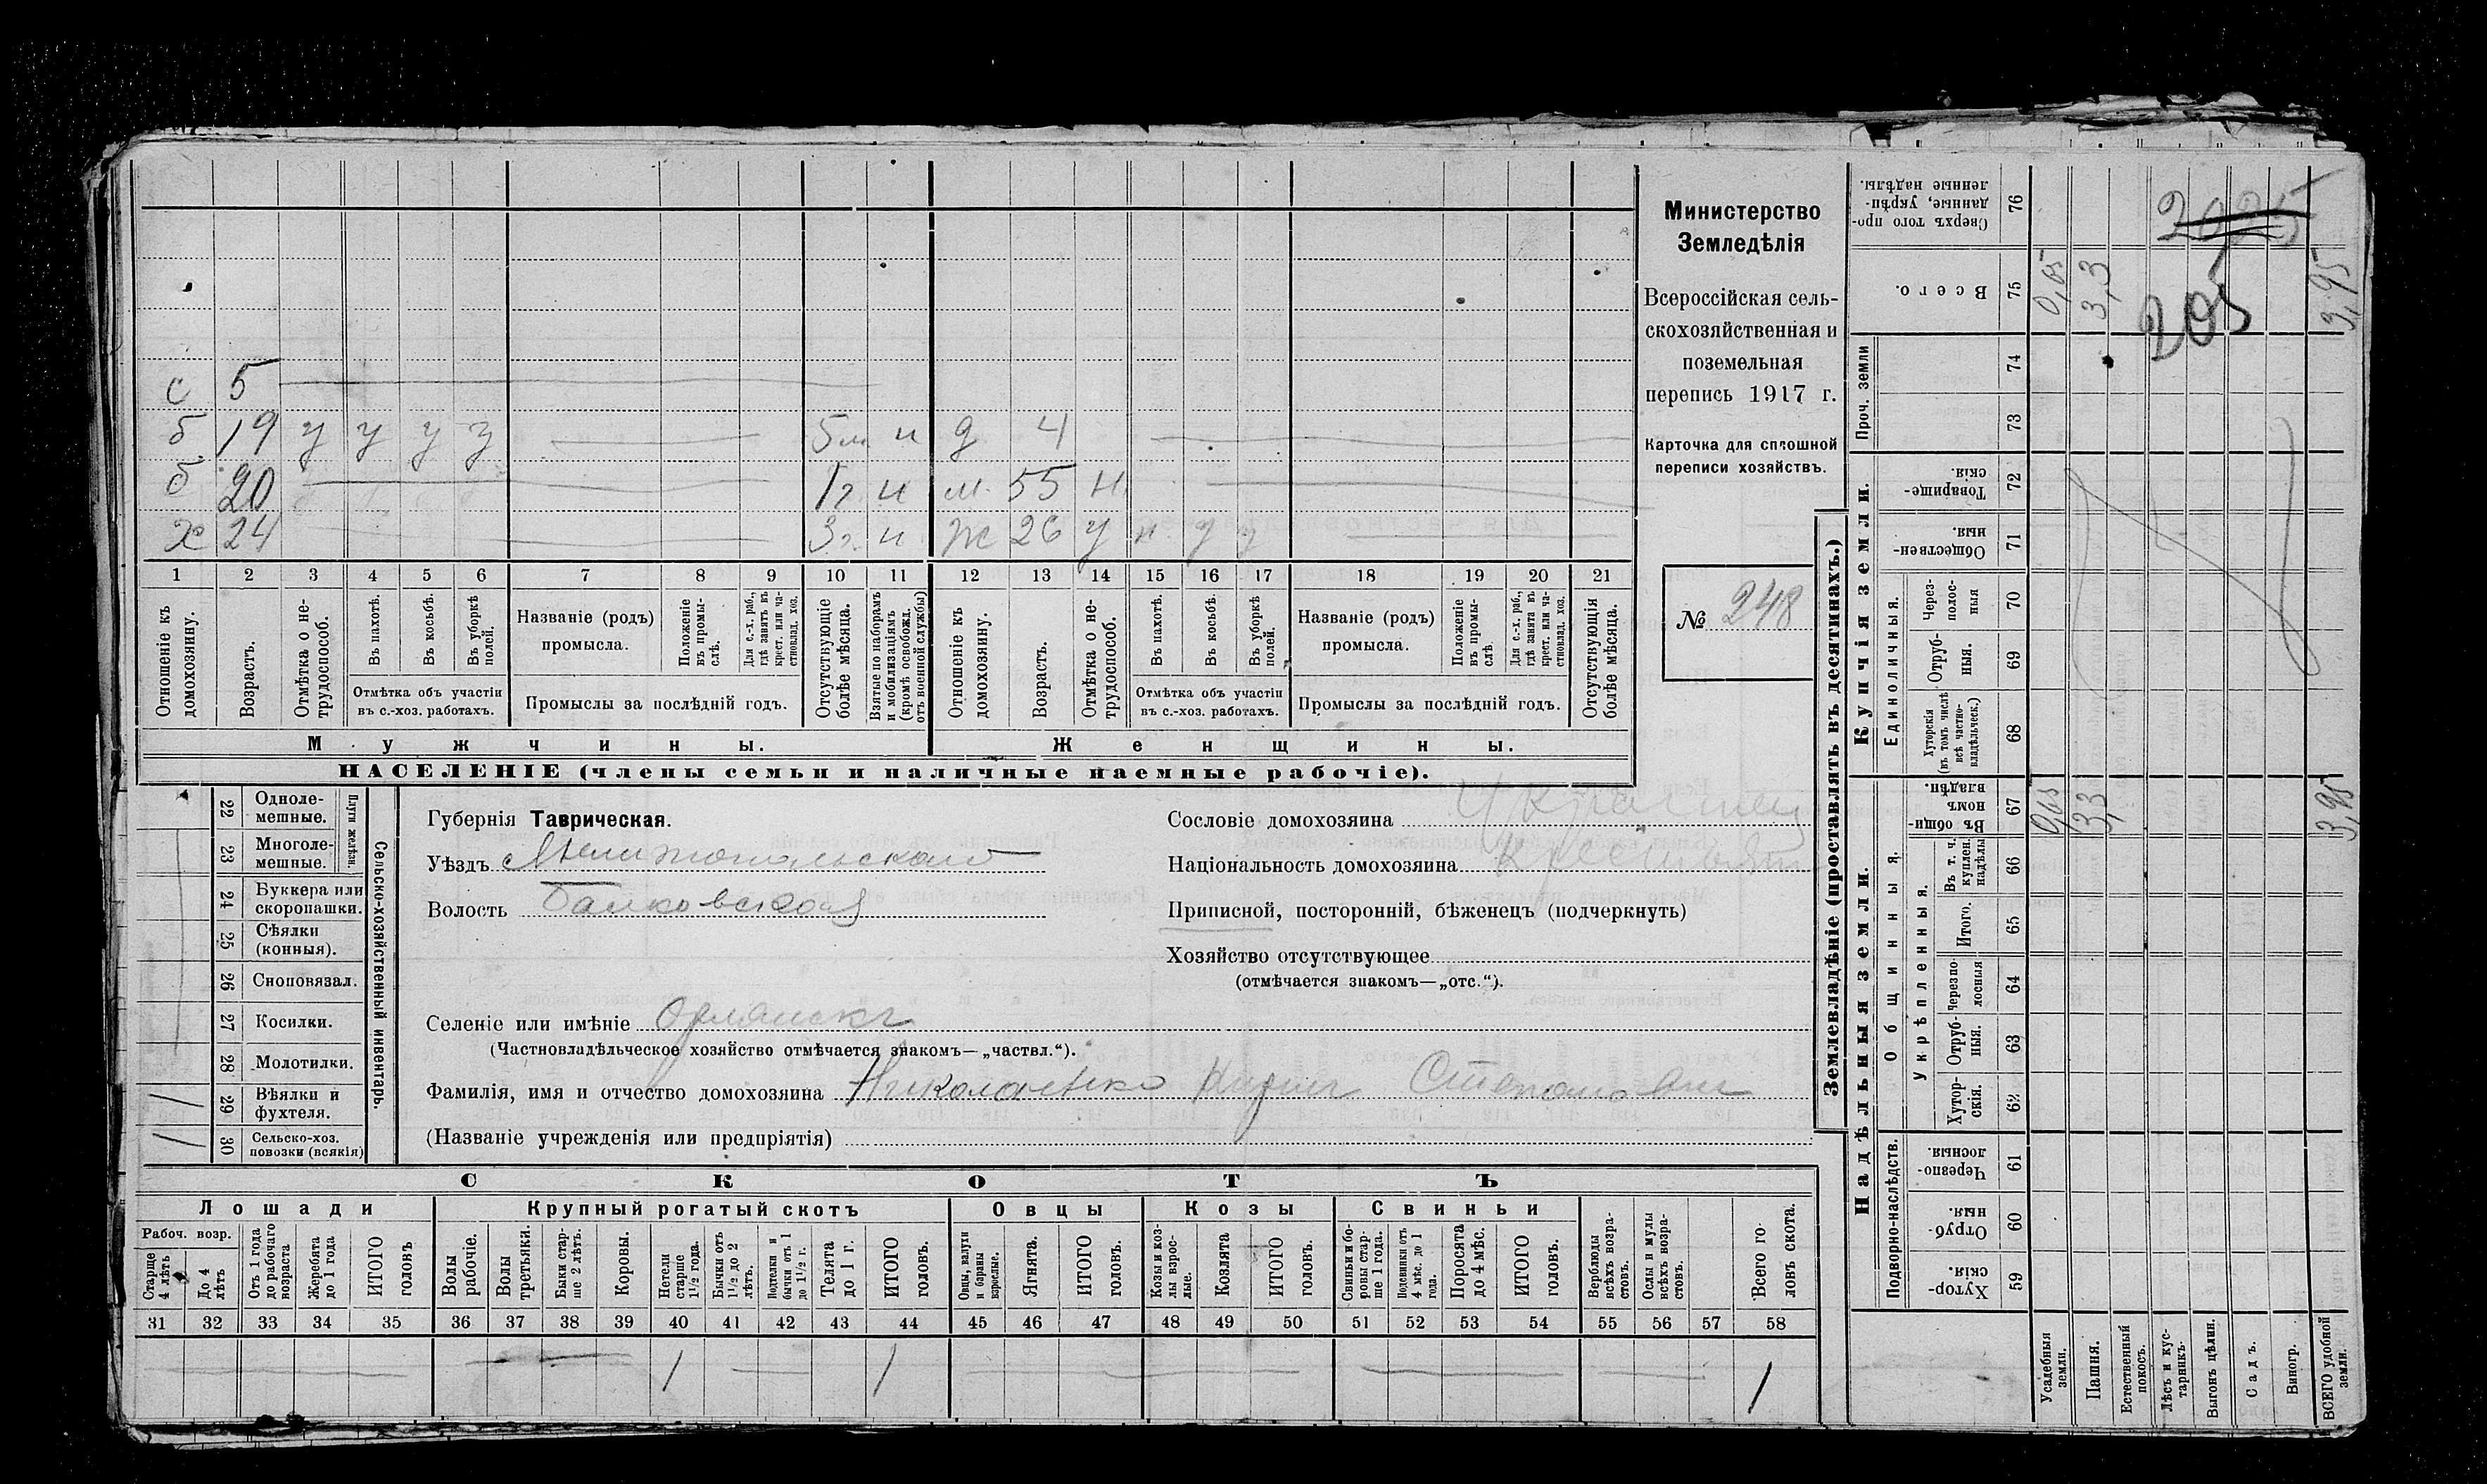 Министерство
Земледѣлія
Всероссійская сель-
скохозяйственная и
поземельная
перепись 1917 г.
Карточка для сплошной
переписи хозяйствъ.
№ 248
с 5
б 19 у у у з 5 м. н д 4
б 20 1 г н м. 55 н
х 24 3 г. н ж 26 у н у у
1 2 3 4 5 6 7 8 9 10 11 12 13 14 15 16 17 18 19 20 21
Отношеніе къ домохозяину.
Возрастъ.
Отмѣтка о не-трудоспособ.
Въ пахотѣ.
Въ косьбѣ.
Въ уборкѣ полей.
Отмѣтка объ участіи
въ с.-хоз. работахъ.
Названіе (родъ)
промысла.
Положеніе въ промы-слѣ.
Для с.-х. раб., гдѣ занятъ въ крест. или ча-стновлад. хоз.
Промыслы за послѣдній годъ.
Отсутствующіе болѣе мѣсяца.
Взятые по наборамъ и мобилизаціямъ (кромѣ освобожд. отъ военной службы)
Отношеніе къ домохозяину.
Возрастъ.
Отмѣтка о не-трудоспособ.
Въ пахотѣ.
Въ косьбѣ.
Въ уборкѣ полей.
Отмѣтка объ участіи
въ с.-хоз. работахъ.
Названіе (родъ)
промысла.
Положеніе въ промы-слѣ.
Для с.-х. раб., гдѣ занята въ крест. или ча-стновлад. хоз.
Промыслы за послѣдній годъ.
Отсутствующія болѣе мѣсяца.
Мужчины.
Женщины.
НАСЕЛЕНІЕ (члены семьи и наличные наемные рабочіе).
Сельско-хозяйственный инвентарь.
Плуги желѣзн.
22 Одноле-мешные.
23 Многоле-мешные.
24 Буккера или скоропашки.
25 Сѣялки (конныя).
26 Сноповязал.
27 Косилки.
28 Молотилки.
/ 29 Вѣялки и фухтеля.
/ 30 Сельско-хоз. повозки (всякія)
Губернія Таврическая.
Уѣздъ Мелитопольскаго
Волость Балковской
Селеніе или имѣніе Орлянскъ
(Частновладѣльческое хозяйство отмѣчается знакомъ—„частвл.“).
Фамилія, имя и отчество домохозяина Николаенко Кирилъ Степанов
(Названіе учрежденія или предпріятія)
Сословіе домохозяина Украинец
Національность домохозяина Крестьян
Приписной, посторонній, бѣженецъ (подчеркнуть)
Хозяйство отсутствующее
(отмѣчается знакомъ—„отс.“).
СКОТЪ
Лошади
Рабоч. возр.
Старше 4 лѣтъ
До 4 лѣтъ
Отъ 1 года до рабочаго возраста
Жеребята до 1 года
ИТОГО головъ
Крупный рогатый скотъ
Волы рабочіе.
Волы третьяки.
Быки стар-ше 2 лѣтъ.
Коровы.
Нетели старше 1 1/2 года.
Бычки отъ 1 1/2 до 2 лѣтъ.
Подтелки и бычки отъ 1 до 1 1/2 г.
Телята до 1 г.
ИТОГО головъ.
Овцы
Овцы, валухи и бараны взрослые.
Ягнята.
ИТОГО головъ.
Козы
Козы и коз-лы взрос-лые.
Козлята
ИТОГО головъ.
Свиньи
Свиньи и бо-ровы стар-ше 1 года.
Подсвинки отъ 4 мѣс. до 1 года.
Поросята до 4 мѣс.
ИТОГО головъ.
Верблюды всѣхъ возра-стовъ.
Ослы и мулы всѣхъ возра-стовъ.
Всего го-ловъ скота.
31 32 33 34 35 36 37 38 39 40 41 42 43 44 45 46 47 48 49 50 51 52 53 54 55 56 57 58
1 1 1
Землевладѣніе (проставлять въ десятинахъ.)
Надѣльныя земли.
Подворно-наслѣдств.
Хутор-скія. 59
Отруб-ныя. 60
Черезпо-лосныя. 61
Общинныя.
Укрѣпленныя.
Хутор-скія. 62
Отруб-ныя. 63
Черезпо-лосныя 64
Итого. 65
Въ т. ч. куплен. надѣлы 66
Въ общин-номъ владѣн. 67
0,65 3,3 3,95
Купчія земли.
Единоличныя.
Хуторскія (въ томъ числѣ всѣ частно-владѣльческ.) 68
Отруб-ныя. 69
Через-полос-ныя 70
Обществен-ныя. 71
Товарище-скія. 72
Проч. земли
73
74
Всего. 75
0,65 3,3 3,95
Сверхъ того про-данные, укрѣп-ленные надѣлы. 76
2025
205
Усадебныя земли.
Пашня.
Естественный покосъ.
Лѣсъ и кус-тарникъ.
Выгонъ цѣлин.
Садъ.
Виногр.
ВСЕГО удобной земли.